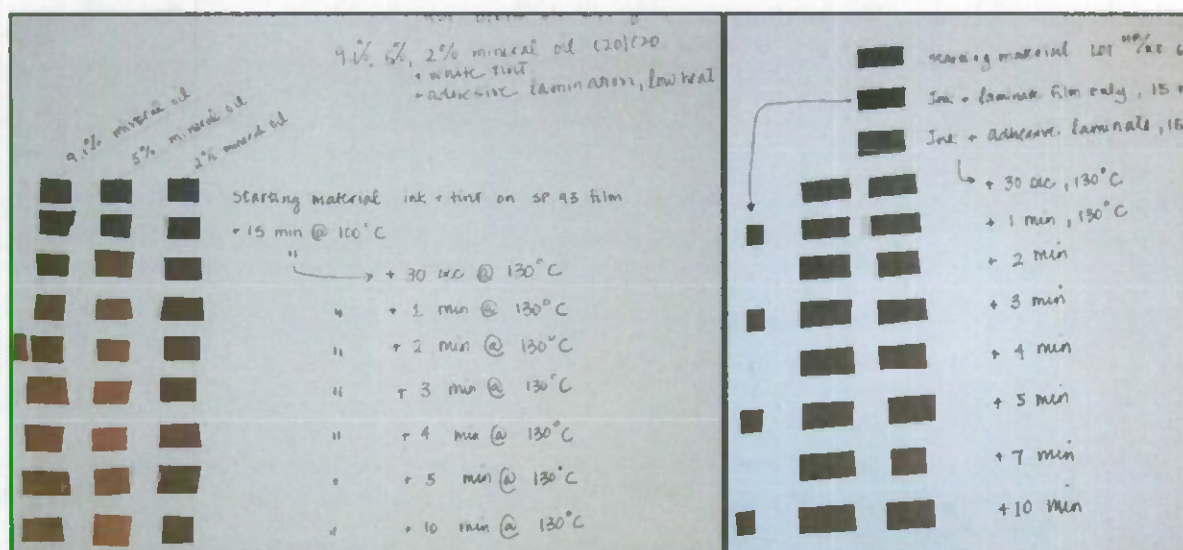 9.1%, 5%, 2% mineral oil C20/C20
+ white tint
+ adhesive lamination, low heat
9.1% mineral oil
5% mineral oil
2% mineral oil
Starting material ink + tint on SP 93 film
+ 15 min @ 100°C
" + 30 sec @ 130°C
" + 1 min @ 130°C
" + 2 min @ 130°C
" + 3 min @ 130°C
" + 4 min @ 130°C
" + 5 min @ 130°C
" + 10 min @ 130°C
Starting material Lot
Ink + laminate film only, 15
Ink + adhesive laminate, 15
+ 30 sec, 130°C
+ 1 min, 130°C
+ 2 min
+ 3 min
+ 4 min
+ 5 min
+ 7 min
+10 min